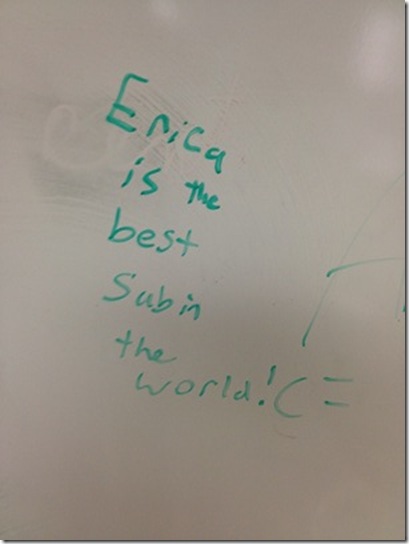 Erica
is the
best
Sub in
the
world! (=